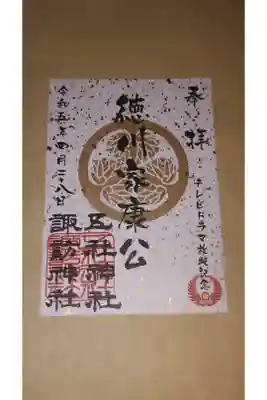 奉拝
テレビドラマ放映記念
徳川家康公
五社神社
諏訪神社
令和五年四月二十八日